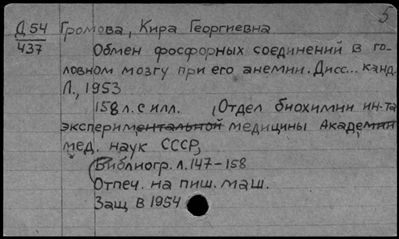 5
Д54 Громова, Кира Георгиевна
437
Обмен фосфорных соединений в го-
ловном мозгу при его анемии. Дисс... канд.
Л., 1953
158 л. с илл. (Отдел биохимии ин-та
экспериментальной медицины Академии
мед. наук СССР)
Библиогр. л. 147-158
Отпеч. на пиш. маш.
Защ. в 1954